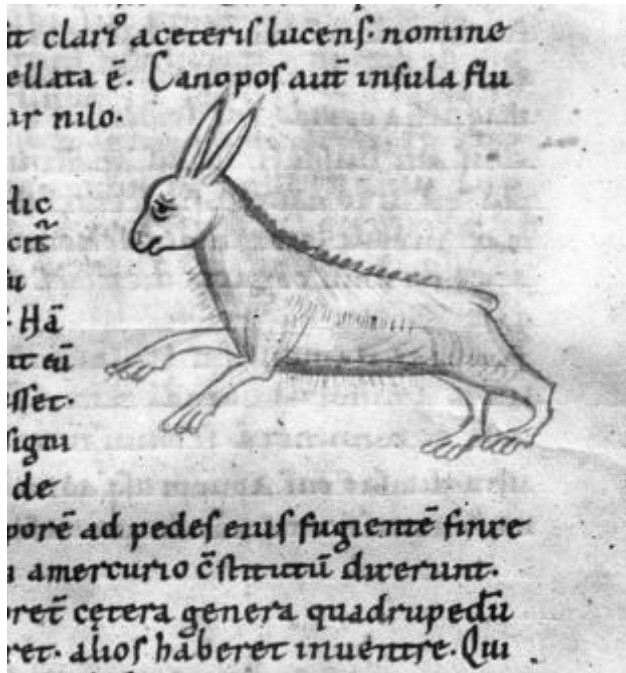 clariꝰ aceteriſ lucenſ· nomine
ellata ē. Canopoſ aut̄ inſula flu
ar nilo·
dic
cit̄
· Hā
ut eū
eſſet·
ſigni
de
porē ad pedeſ eiuſ fugientē fince
amercurio c̄ſtitutū dicerunt·
ret̄ cętera genera quadrupedū
ret· alioſ haberet inuentre· Qui